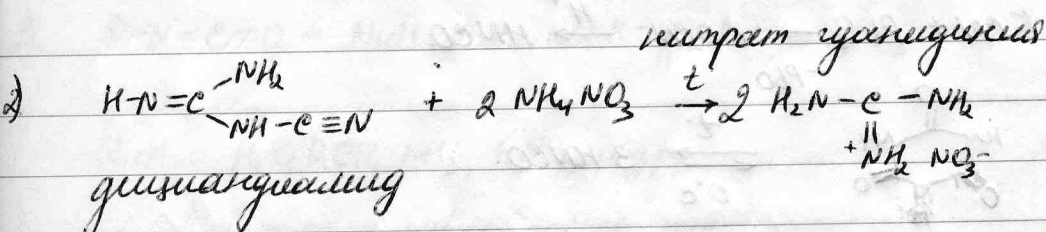 нитрат гуанидиния
2) H-N=C NH₂ + 2 NH₄NO₃ t → 2 H₂N-C-NH₂
NH-C≡N || ⁺NH₂ NO₃⁻
дициандиамид